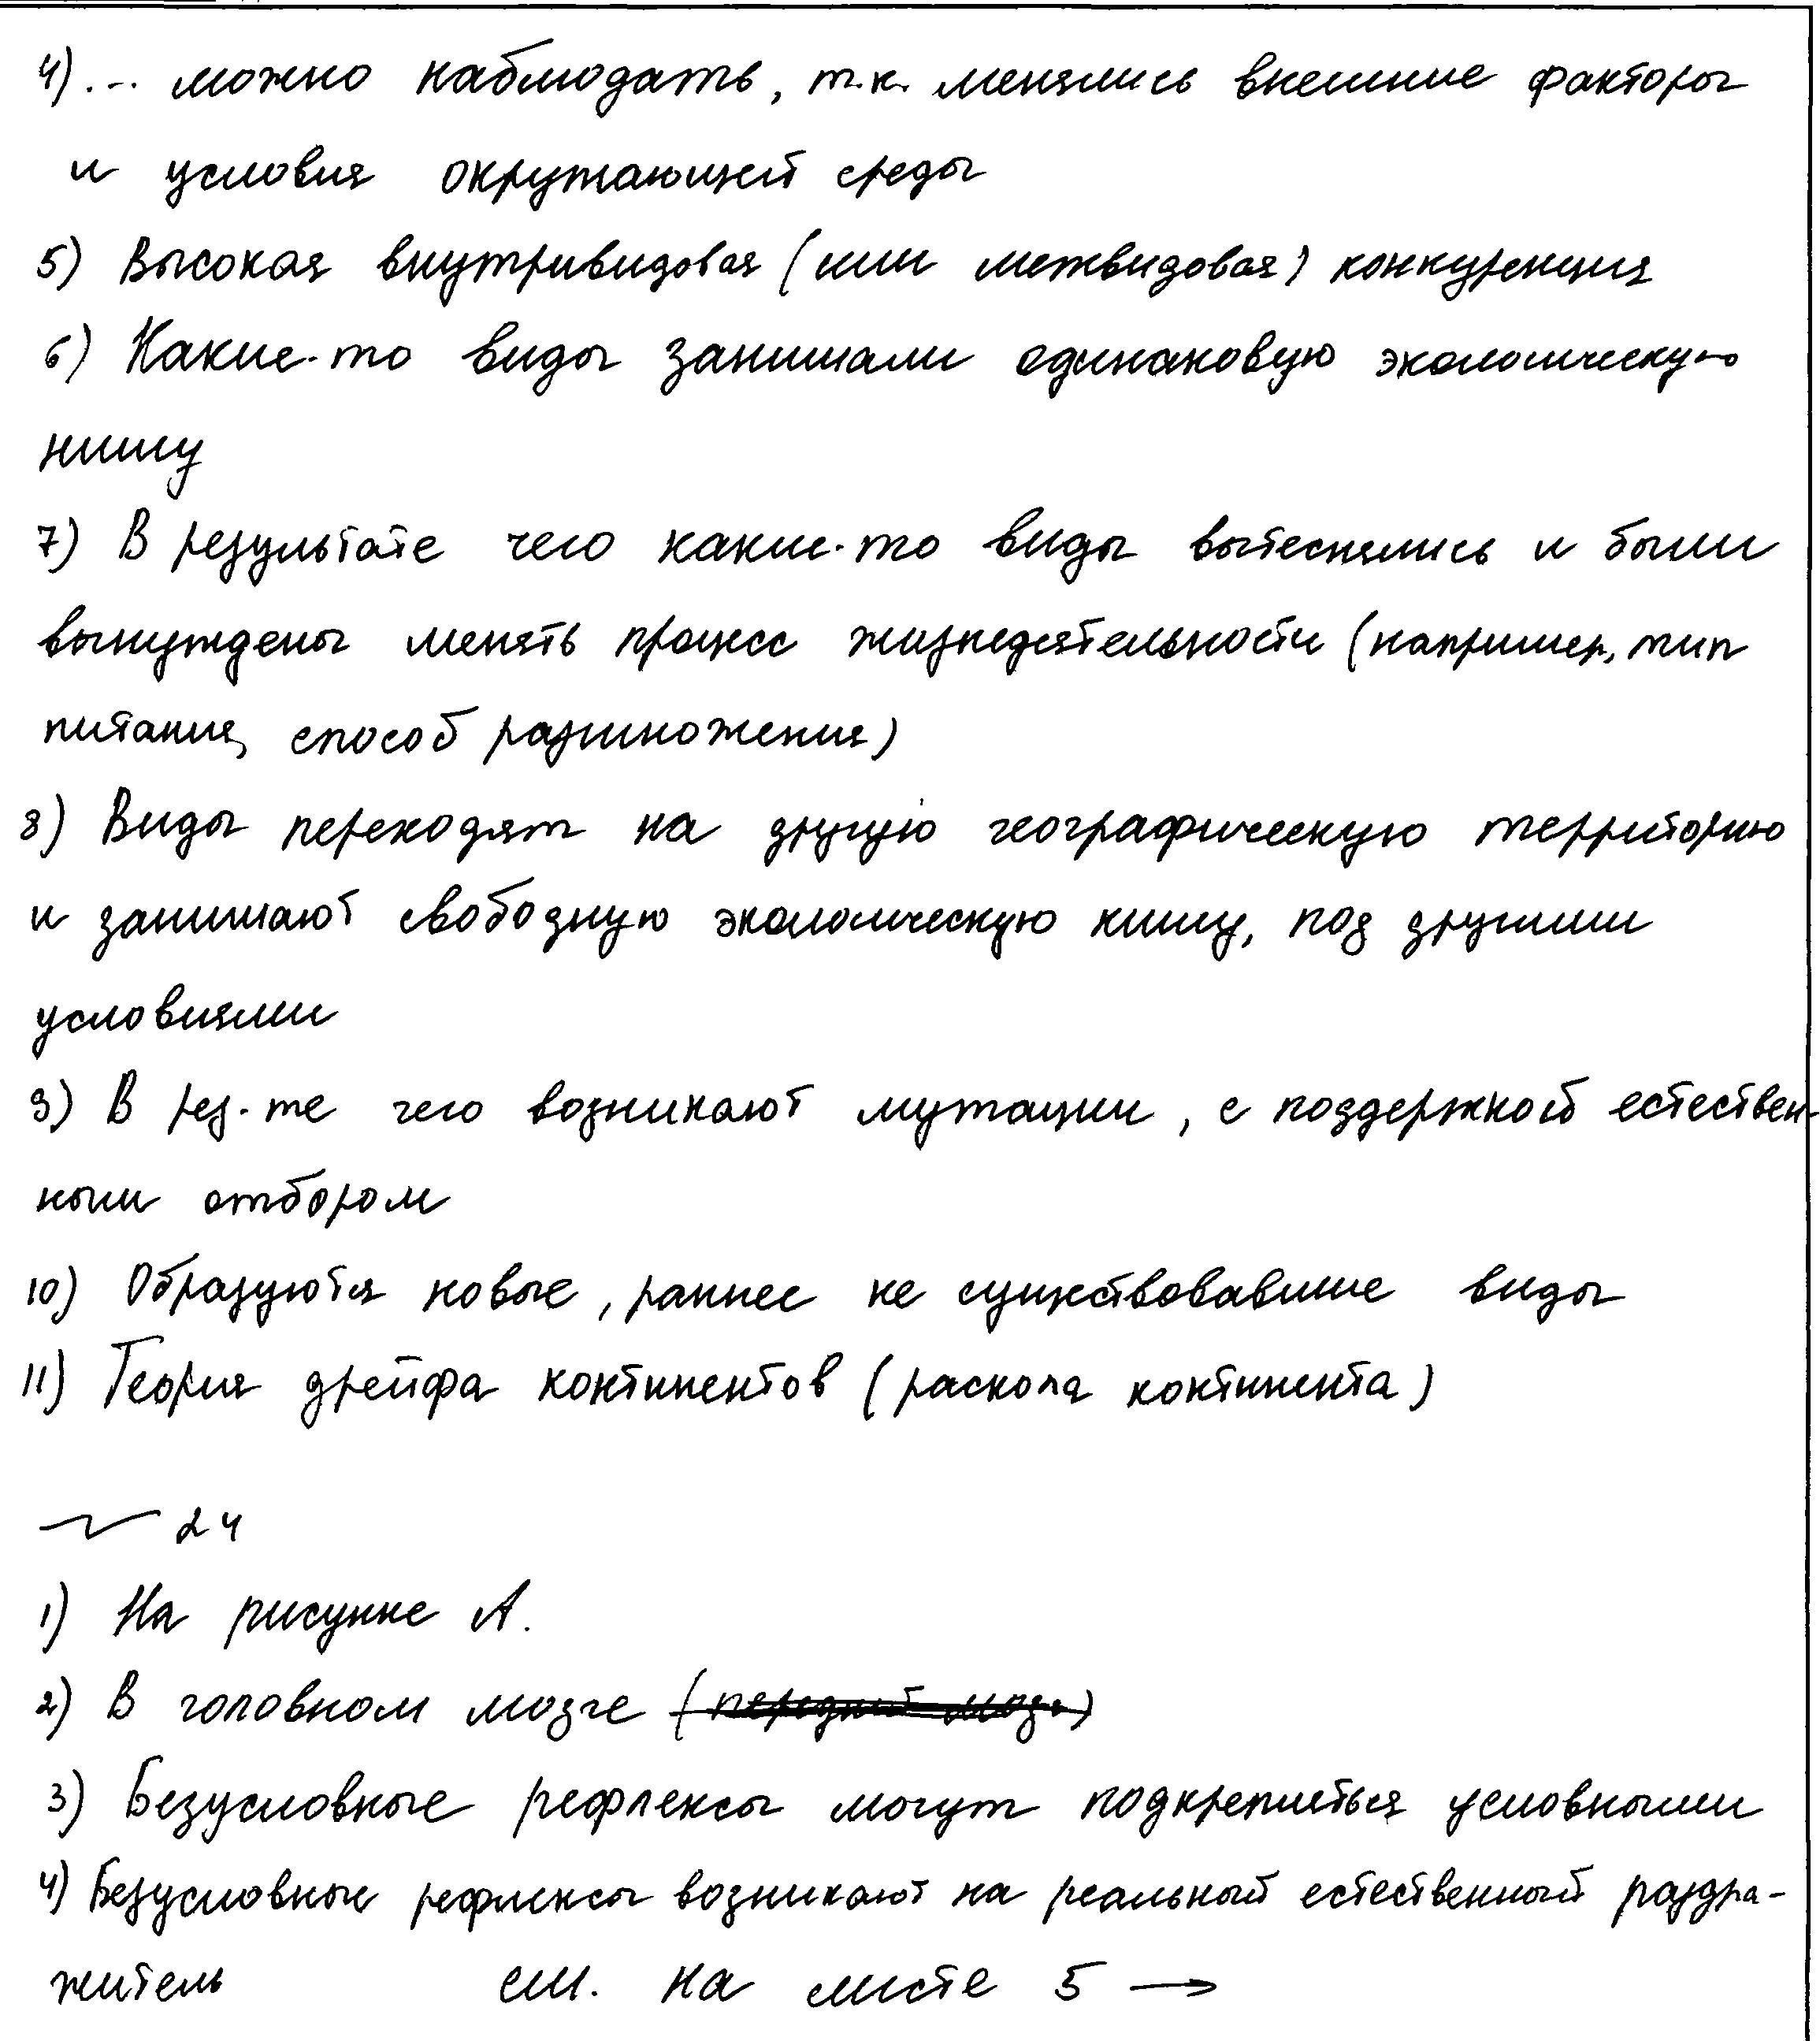 4)... можно наблюдать, т.к. менялись внешние факторы
и условия окружающей среды
5) Высокая внутривидовая (или межвидовая) конкуренция
6) Какие-то виды занимали одинаковую экологическую
нишу
7) В результате чего какие-то виды вытеснялись и были
вынуждены менять процесс жизнедеятельности (например, тип
питания, способ размножения)
8) Виды переходят на другую географическую территорию
и занимают свободную экологическую нишу, под другими
условиями
9) В рез-те чего возникают мутации, с поддержкой естествен-
ным отбором
10) Образуются новые, раннее не существовавшие виды
11) Теория дрейфа континентов (раскола континента)
~ 24
1) На рисунке А.
2) В головном мозге (передний мозг)
3) Безусловные рефлексы могут подкрепиться условными
4) Безусловные рефлексы возникают на реальный естественный раздра-
житель см. на листе 5 →